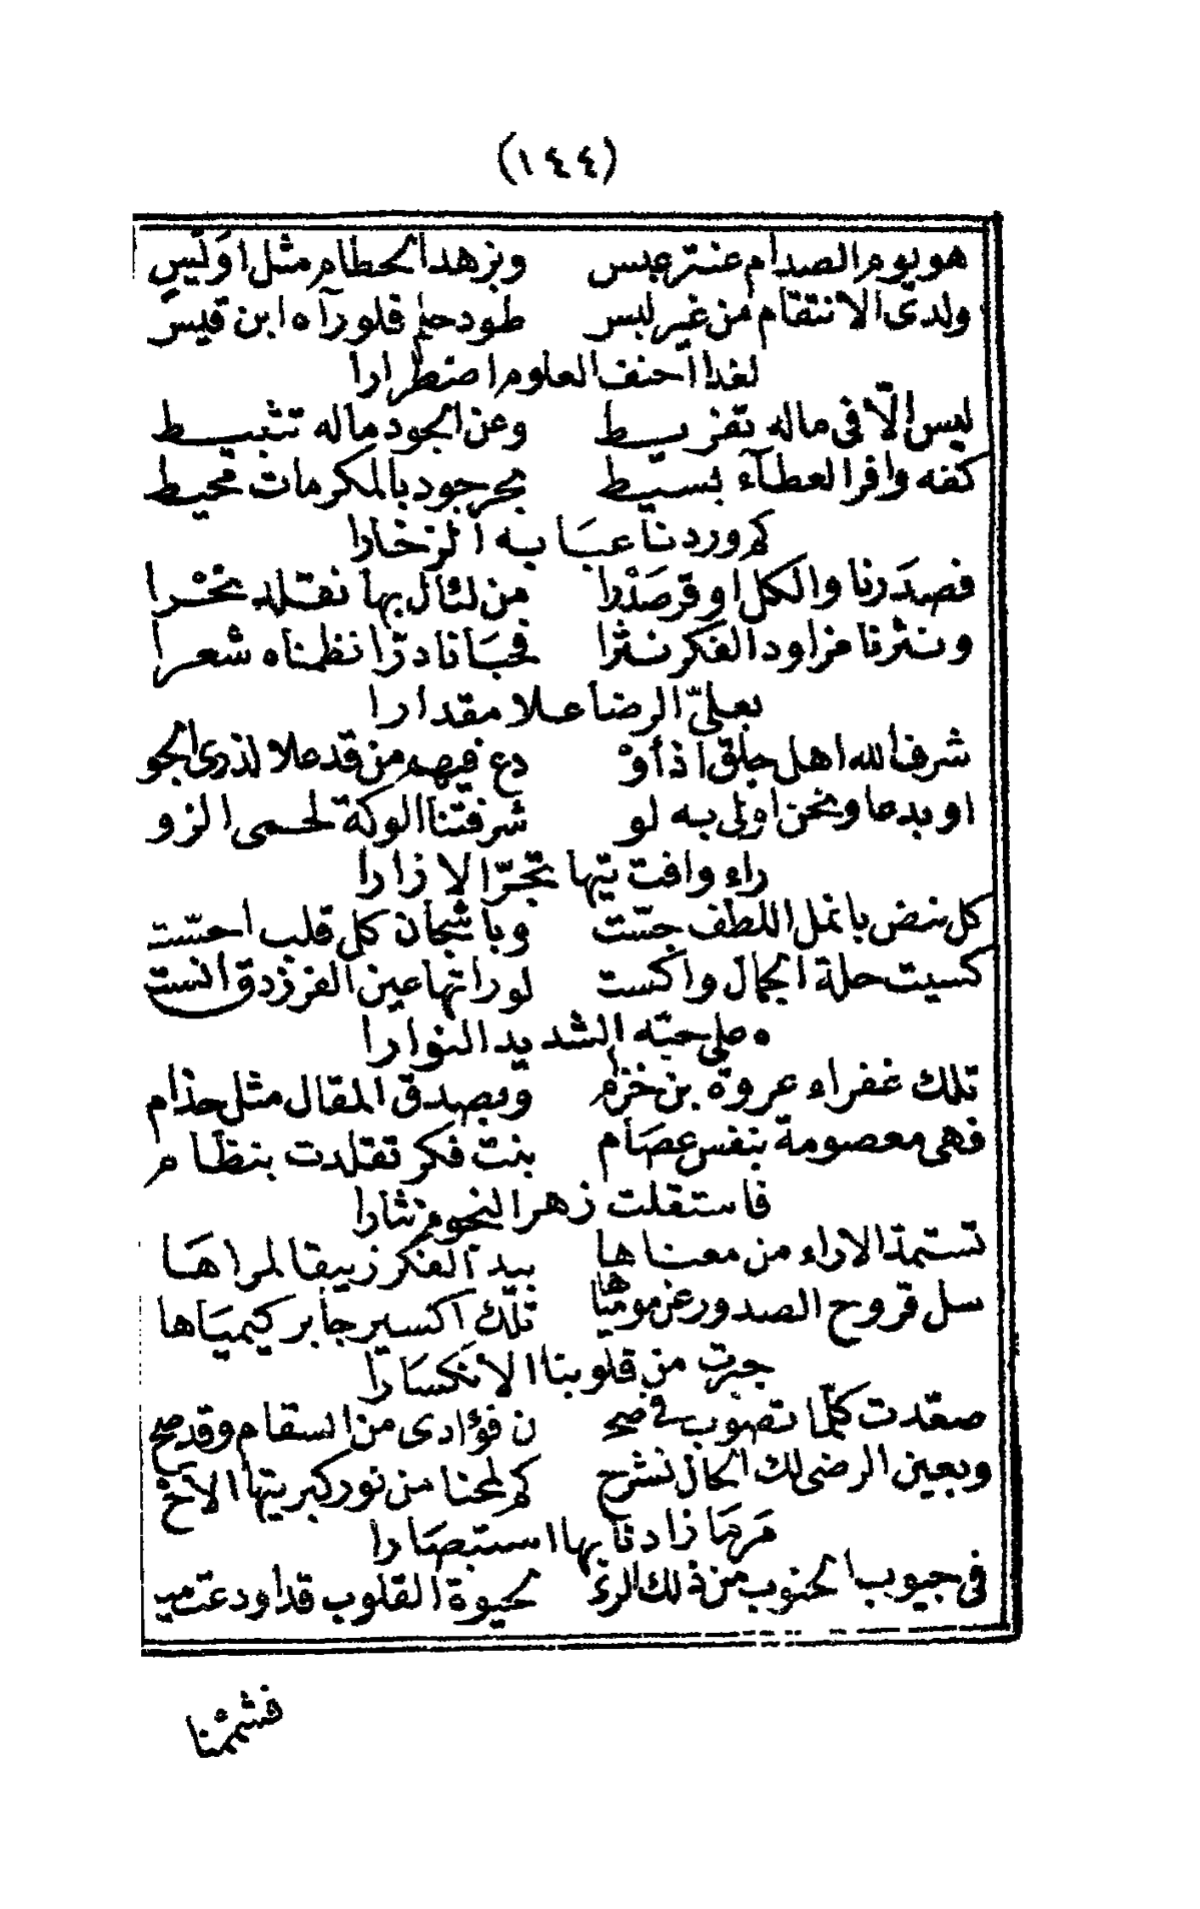 (١٤٤)
هو يوم الصدام عنتر عبس وبزهد الحطام مثل اويس
ولدى الانتقام من غير لبس طود حلم فلو رآه ابن قيس
لغدا احنف العلوم اضطرارا
ليس الّا فى ماله تفريط وعن الجود ماله تثبيط
كفه وافر العطآء بسيط بحر جود بالمكرمات محيط
كم وردنا عبابه الزخارا
فصدرنا والكل اوقر صَدْرا من لئال بها نقلد نحْرا
ونثرنا مزاود الفكر نثرا فحبانا درّا نظمناه شعرا
بعلىّ الرضا علا مقدارا
شرف الله اهل جلق اذ أوْ دع فيهم من قد علا لذرى الجو
او بدعا ونحن اولى به لو شرفتنا الوكة لحمى الزو
راء وافت تيها تجرّ الازارا
كل نبض بانمل اللطف جسّت وباشجان كل قلب احسّت
كسيت حلة الجمال واكست لو راتها عين الفرزدق انست
ه على حبّه الشديد النوارا
تلك غفراء عروة بن خزام وبصدق المقال مثل حذام
فهى معصومة بنفس عصام بنت فكر تقلدت بنظام
فاستقلت زهر النجوم نثارا
تستمدّ الاراء من معناها بيد الفكر زيبقا لمراها
سل قروح الصدور عن موميّاها تلك اكسير جابر كيمياها
جبرت من قلوبنا الانكسارا
صعّدت كلّما تصوب فى صحـ ن فؤادى من السقام وقد صح
وبعين الرضى لك الحال نشرح كم لمحنا من نور كبريتها الاحْـ
مَر ما زادنا بها استبصارا
فى جيوب الجنوب من ذلك الرئ لحيوة القلوب قد اودعت مي
فشممنا